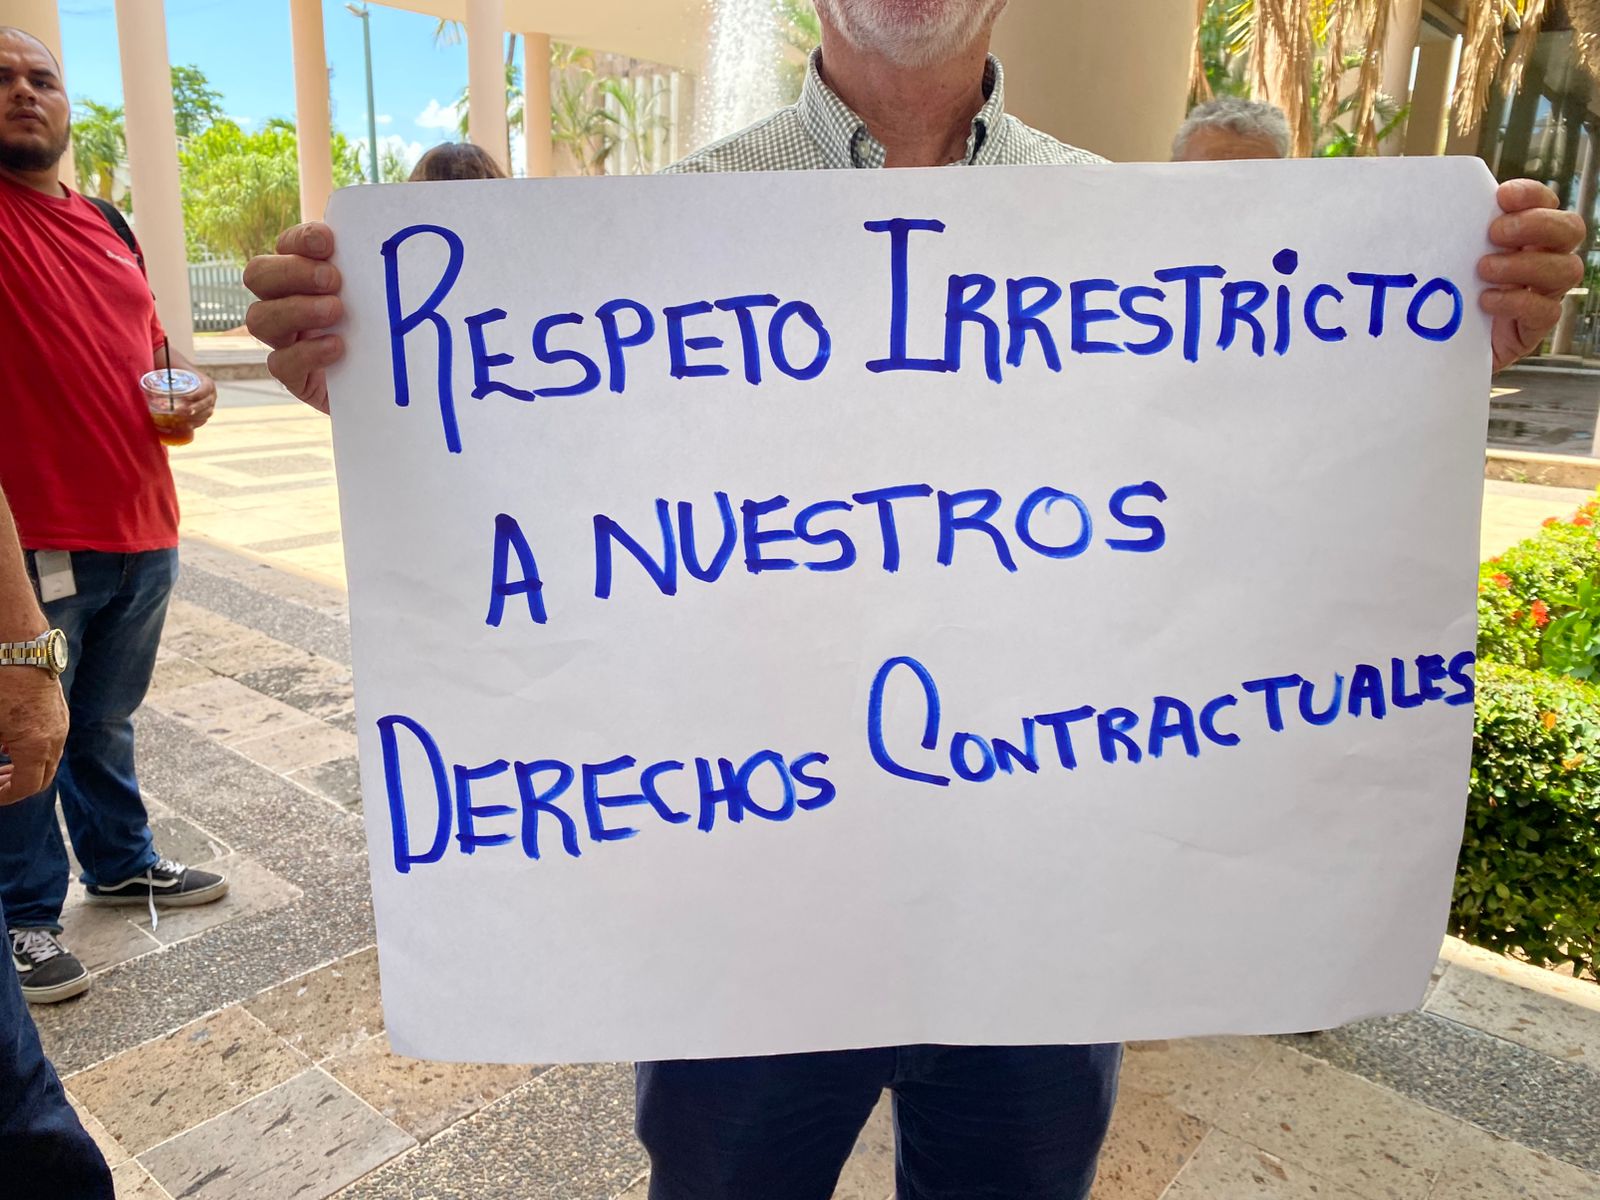 RESPETO IRRESTRiCTO
A NUESTROS
DERECHOS CONTRACTUALES